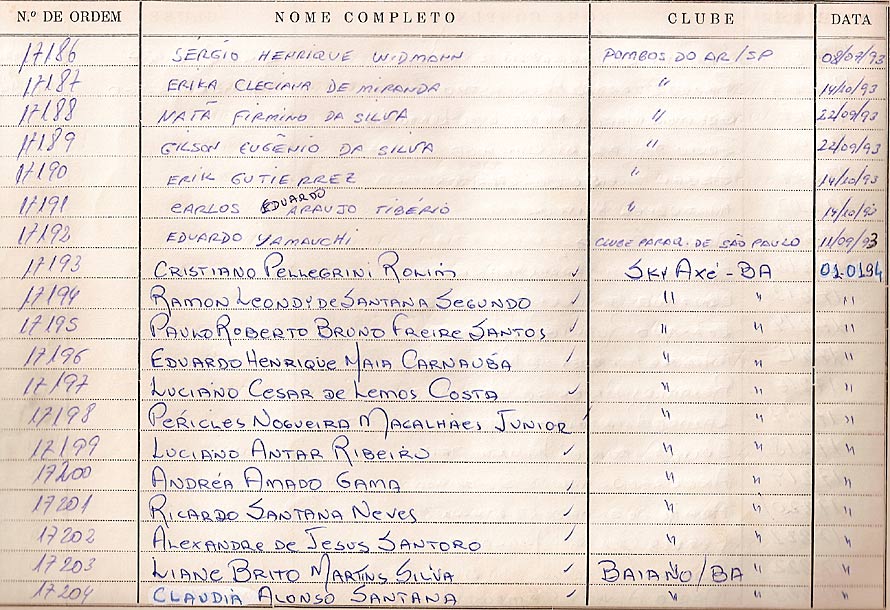 N.º DE ORDEM NOME COMPLETO CLUBE DATA
17186 SÉRGIO HENRIQUE WIDMANN POMBOS DO AR/SP 08/07/93
17187 ERIKA CLECIANA DE MIRANDA " 14/10/93
17188 NATÃ FIRMINO DA SILVA " 22/09/93
17189 GILSON EUGÊNIO DA SILVA " 22/09/93
17190 ERIK GUTIERREZ " 14/10/93
17191 CARLOS EDUARDO ARAUJO TIBÉRIO " 14/10/93
17192 EDUARDO YAMAUCHI CLUBE PARAQ. DE SÃO PAULO 11/09/93
17193 CRISTIANO PELLEGRINI ROLIM ✓ SKY AXÉ - BA 01.0194
17194 RAMON LEONDI DE SANTANA SEGUNDO ✓ " " "
17195 PAULO ROBERTO BRUNO FREIRE SANTOS ✓ " " "
17196 EDUARDO HENRIQUE MAIA CARNAUBA ✓ " " "
17197 LUCIANO CESAR DE LEMOS COSTA ✓ " " "
17198 PÉRICLES NOGUEIRA MAGALHÃES JUNIOR ✓ " " "
17199 LUCIANO ANTAR RIBEIRO ✓ " " "
17200 ANDRÉA AMADO GAMA ✓ " " "
17201 RICARDO SANTANA NEVES ✓ " " "
17202 ALEXANDRE DE JESUS SANTORO ✓ " " "
17203 LIANE BRITO MARTINS SILVA ✓ BAIANO/BA " "
17204 CLAUDIA ALONSO SANTANA ✓ " " "